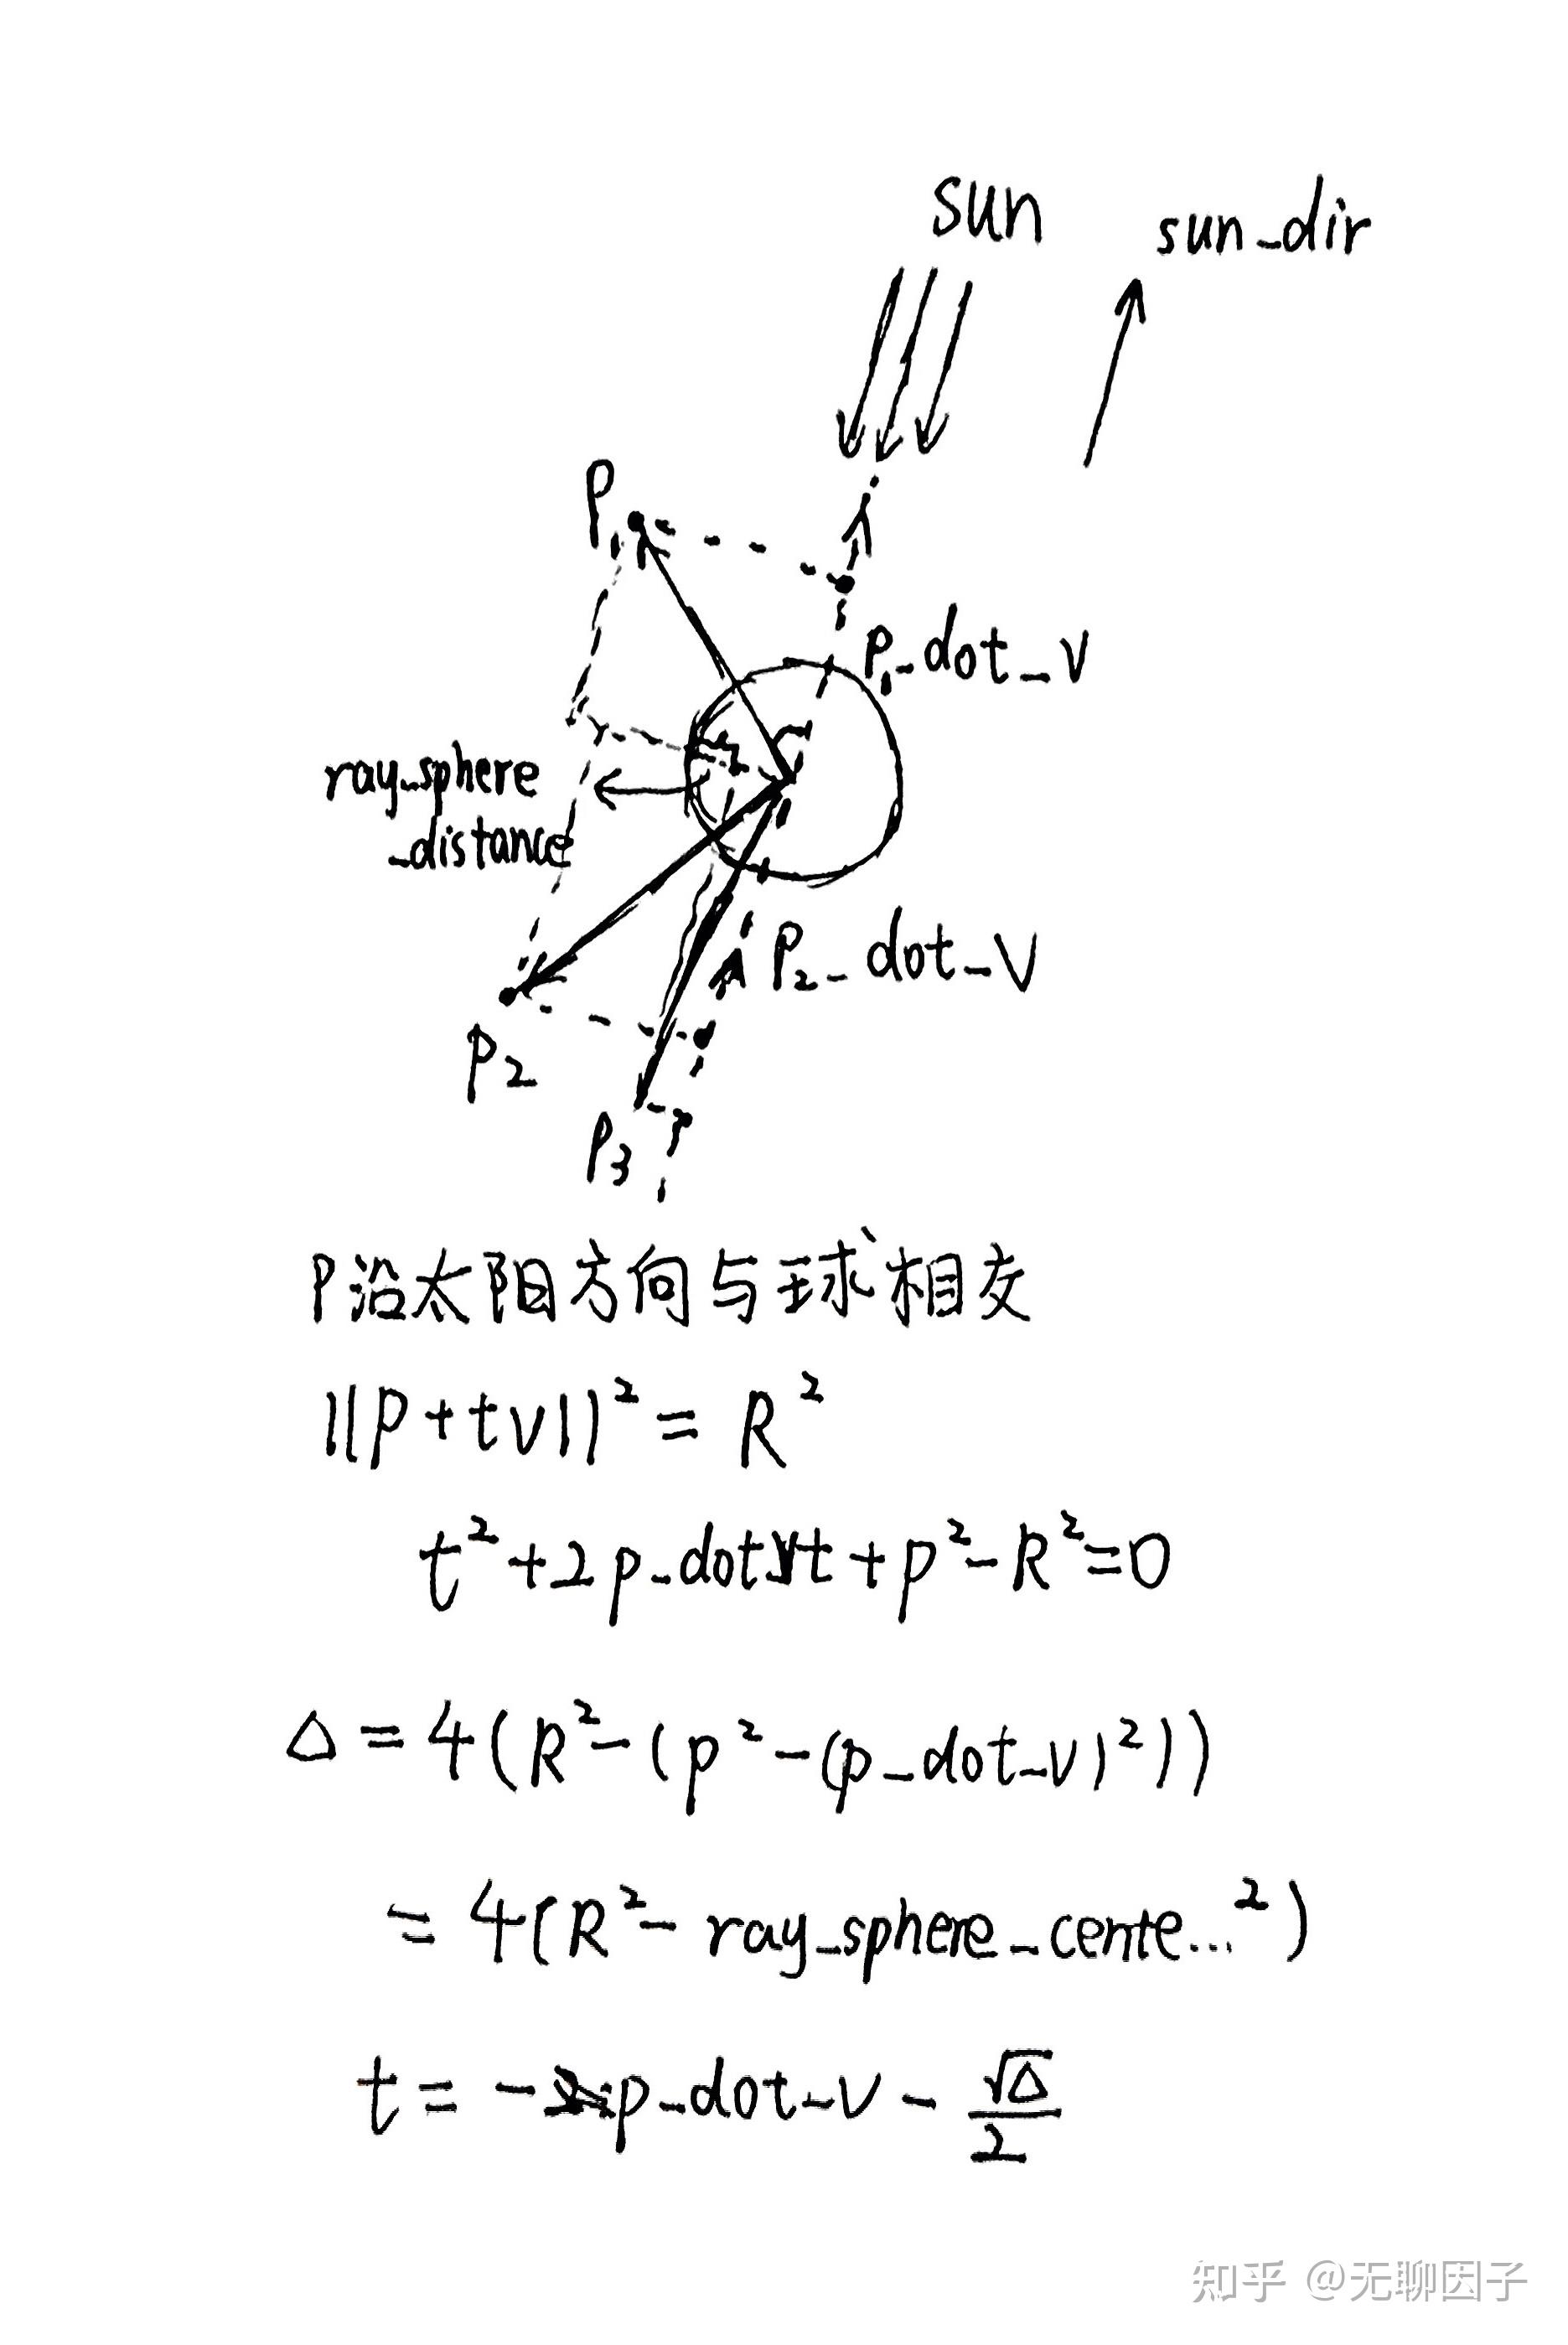 sun
sun_dir
P₁
P₁_dot_v
ray_sphere
_distance
P₂_dot_v
P₂
P₃
P沿太阳方向与球相交
||P+tv||² = R²
t²+2p_dot_vt+p²-R²=0
Δ=4(R²-(p²-(p_dot_v)²))
=4(R²-ray_sphere_cente...²)
t=-p_dot_v-√Δ/2
知乎 @无聊因子